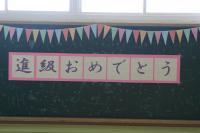 進級おめでとう